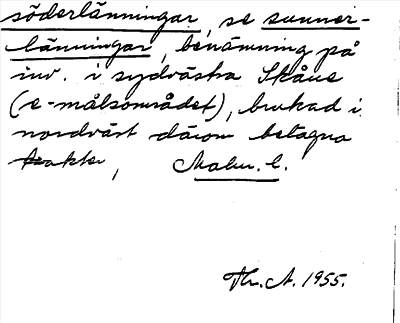 söderlänningar, se sunner-
länningar, benämning på
inv. i sydvästra Skåne
(e-målsområdet), brukad i
nordväst därom belägna
trakter, Malm. l.
Th. A. 1955.